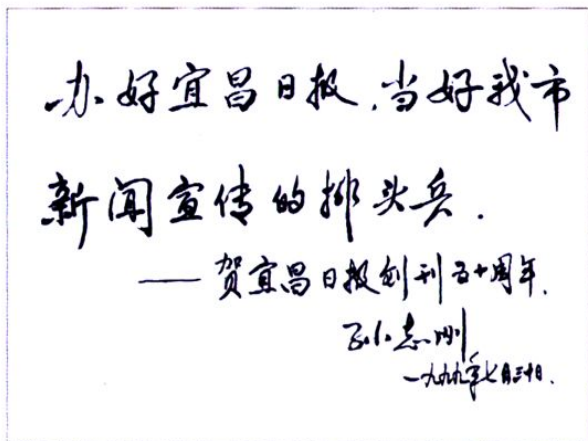 办好宜昌日报,当好我市
新闻宣传的排头兵.
——贺宜昌日报创刊五十周年.
孙志刚
一九九九年七月三十日.